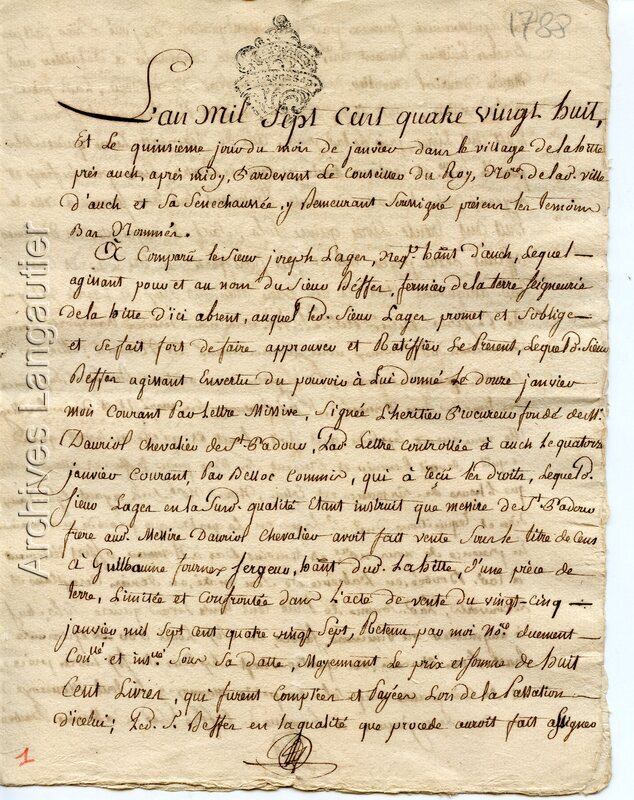 1788
L'an Mil Sept Cent quatre vingt huit,
Et Le quinsieme jour du mois de janvier dans le village de lahitte
près auch, après midy, Pardevant Le Conseiller du Roy, No.re de lad. ville
d'auch et Sa Sénéchaussée, y Demeurant Soussigné présens les temoins
Bas Nommés.
A Comparû le Sieur joseph Lager, Neg.t hânt d'auch, Lequel
agissant pour et au nom du Sieur Béffer, fermier de la terre Seigneurie
de la hitte d'ici absent, auquel led. Sieur Lager promet et S'oblige
et se fait fort de faire approuver et Ratiffier Le Présent, Lequel d. Sieur
Beffer agissant Envertu du pouvoir à Lui donné Le Douze janvier
mois Courant Par Lettre Missive, Signée L'heritier Procureur fondé de M.r
Dauriol Chevalier de S.t Padouv, Lad. Lettre Controllée à auch Le quatorze
janvier Courant, Par Belloc Commis, qui à reçu les droits, Lequel d.
Sieur Lager en la Susd. qualité Etant instruit que messire de S.t Padouv
frere aud. Messire Dauriol Chevalier avoit fait vente Sous le titre de Cens
à Guilhaume fournex Sergeur, hânt dud. Lahitte, d'une pièce de
terre, Limitée et Confrontée dans L'acte de vente du vingt-Cinq
janvier mil Sept Cent quatre vingt Sept, Retenu par moi No.re duement
Con.llé et ins.ué Sous Sa datte, Moyennant Le prix et somme de huit
Cent Livres, qui furent Comptées et Payées Lors de la Passation
d'icelui; Led. S.r Beffer en la qualité que procede auroit fait assigner
1
Archives Langautier